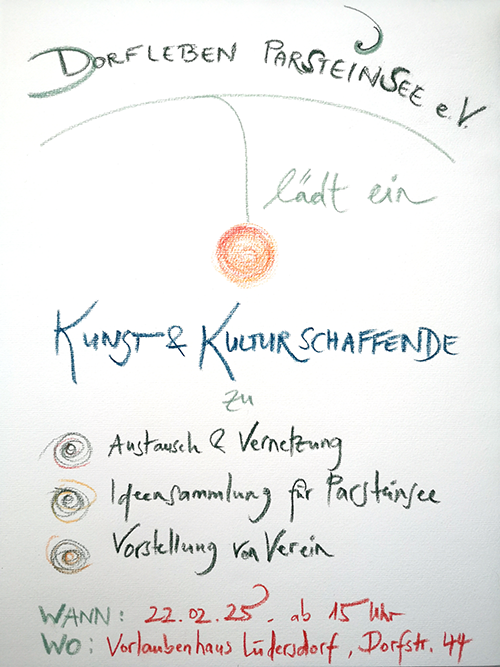 DORFLEBEN PARSTEINSEE e.V.
lädt ein
KUNST & KULTURSCHAFFENDE
zu
Austausch & Vernetzung
Ideensammlung für Parsteinsee
Vorstellung von Verein
WANN: 22.02.25. ab 15 Uhr
WO: Vorlaubenhaus Lüdersdorf, Dorfstr. 44